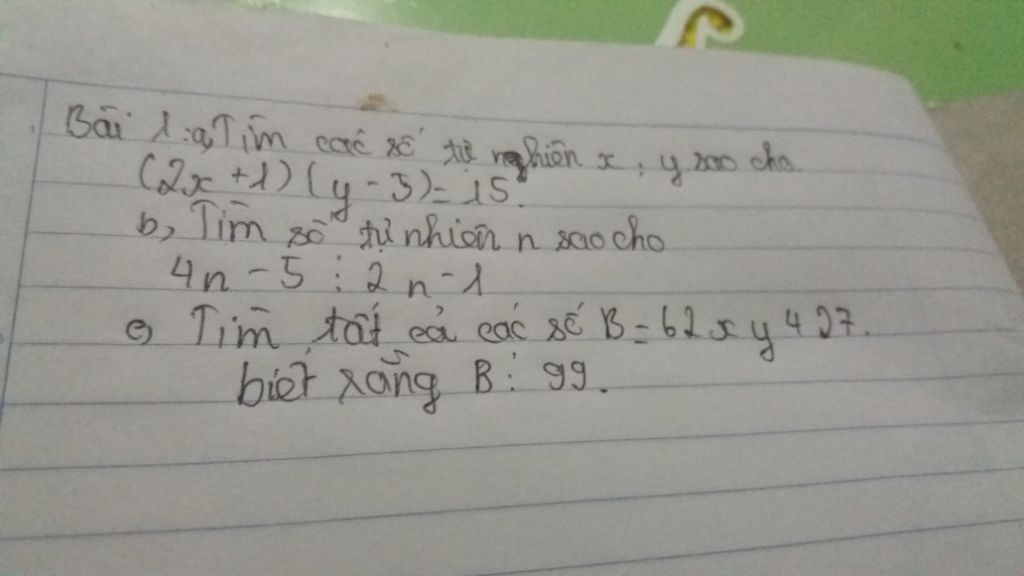 Bài 1: a, Tìm các số tự nghiên x; y sao cho.
(2x + 1) (y - 3) = 15.
b, Tìm số tự nhiên n sao cho
4n - 5 ⋮ 2n - 1
c, Tìm tất cả các số B = 62xy427.
biết rằng B ⋮ 99.